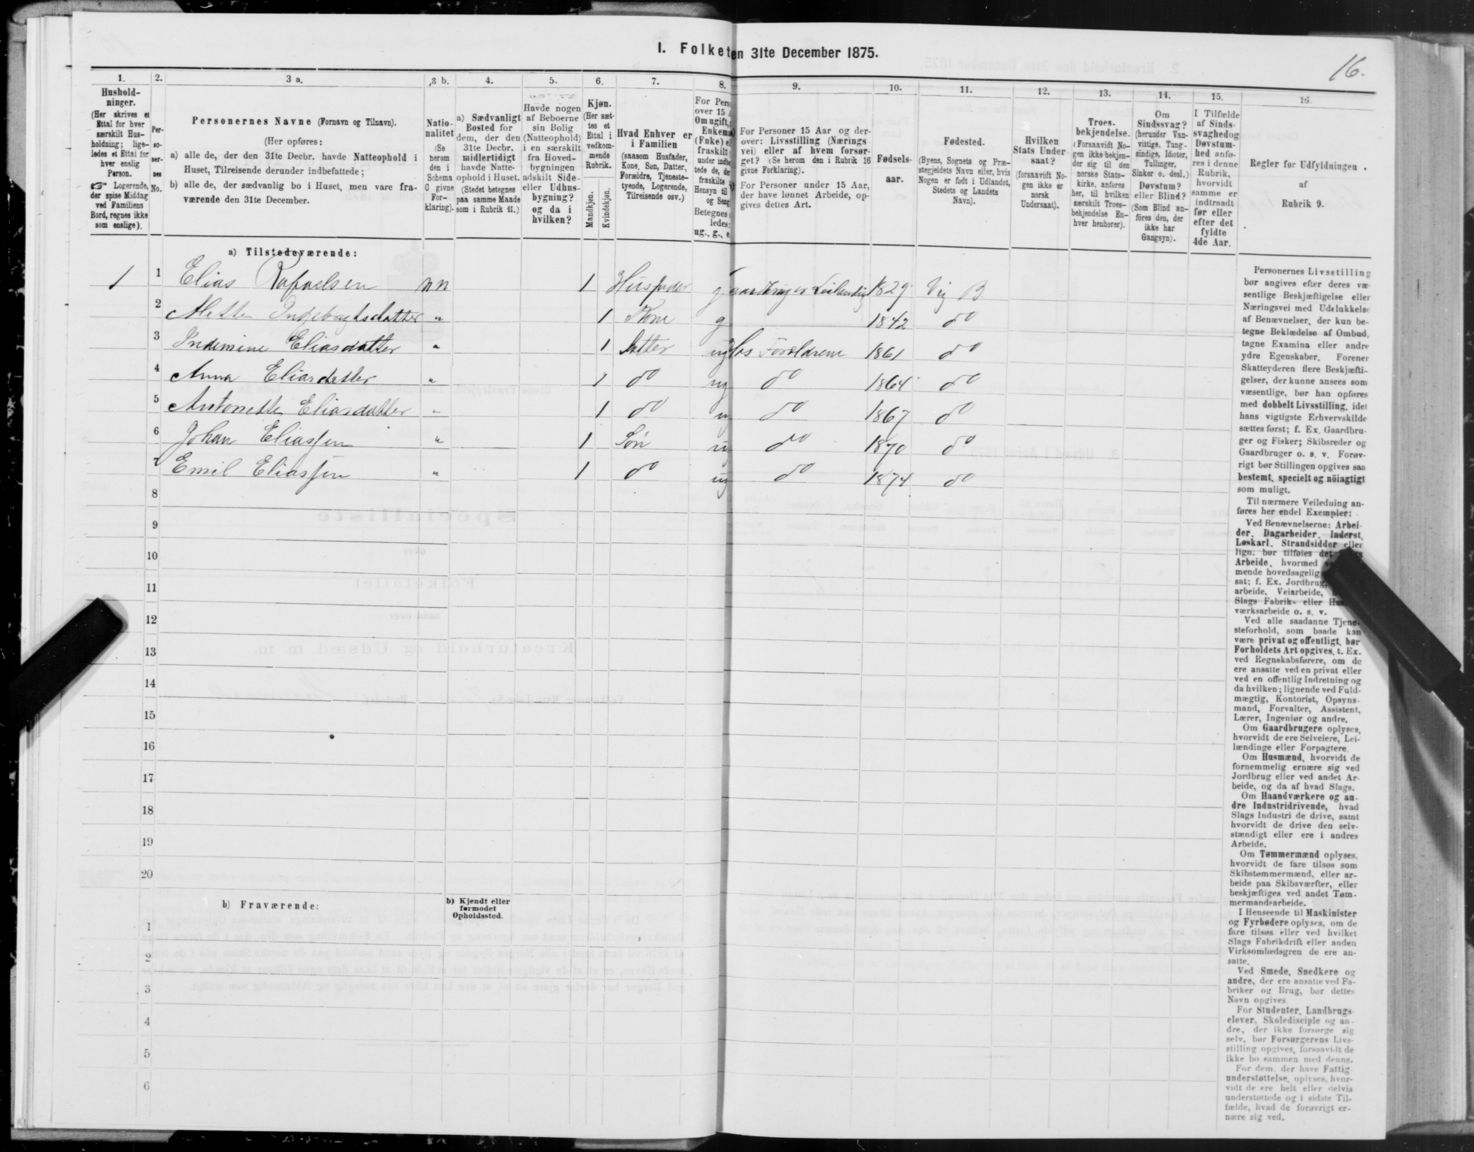 I. Folketen 31te December 1875.
16.
1.
Hushold-
ninger.
(Her skrives et
Ettal for hver
særskilt Hus-
holdning; lige-
ledes et Ettal for
hver enslig
Person.
Logerende,
der spise Middag
ved Familiens
Bord, regnes ikke
som enslige).
2.
Per-
so-
ner-
nes
No.
3 a.
Personernes Navne (Fornavn og Tilnavn).
(Her opføres:
a) alle de, der den 31te Decbr. havde Natteophold i
Huset, Tilreisende derunder indbefattede;
b) alle de, der sædvanlig bo i Huset, men vare fra-
værende den 31te December.
3 b.
Natio-
nalitet
(Se
herom
den i
Schema
C givne
For-
klaring).
4.
a) Sædvanligt
Bosted for
dem, der den
31te Decbr.
midlertidigt
havde Natte-
ophold i Huset.
(Stedet betegnes
paa samme Maade
som i Rubrik 11.)
5.
Havde nogen
af Beboerne
sin Bolig
(Natteophold)
i en særskilt
fra Hoved-
bygningen
adskilt Side-
eller Udhus-
bygning?
og da i
hvilken?
6.
Kjøn.
(Her sæt-
tes et
Ettal i
vedkom-
mende
Rubrik.
Mandkjøn.
Kvindekjøn.
7.
Hvad Enhver er
i Familien
(saasom Husfader,
Kone, Søn, Datter,
Forældre, Tjeneste-
tyende, Logerende,
Tilreisende osv.)
8.
For Pers
over 15
Om ugift,
Enkem
(Fnke) e
fraskilt
9.
For Personer 15 Aar og der-
over: Livsstilling (Nærings
vei) eller af hvem forsør-
get? (Se herom den i Rubrik 16
givne Forklaring).
For Personer under 15 Aar,
der have lønnet Arbeide, op-
gives dettes Art.
10.
Fødsels-
aar.
11.
Fødested.
(Byens, Sognets og Præ-
stegjeldets Navn eller, hvis
Nogen er født i Udlandet,
Stedets og Landets
Navn).
12.
Hvilken
Stats Under
saat?
(foraavidt No-
gen ikke er
norsk
Undersaat).
13.
Troes-
bekjendelse.
(Forsaavidt No-
gen ikke bekjen-
der sig til den
norske Stats-
kirke, anføres
her, til hvilken
særskilt Troes-
bekjendelse En-
hver henhorer).
14.
Om
Sindssvag?
(herunder Van-
vittige, Tung-
sindige, Idioter,
Tullinger,
Sinker o. desl.)
Døvstum?
eller Blind?
(Som Blind an-
føres den, der
ikke har
Gangsyn).
15.
I Tilfælde
af Sinds-
svaghedog
Døvstum-
hed anfø-
res i denne
Rubrik,
hvorvidt
samme er
indtraadt
før eller
efter det
fyldte
4de Aar.
16.
Regler for Udfyldningen
af
Rubrik 9.
a) Tilstedeværende:
1 1 Elias Rafaelsen nn 1 Husfader g 1829 Vig B
2 Mette Ingebrigtsdatter „ 1 Kone g 1842 do
3 Indimine Eliasdatter „ 1 Datter ug hos Forældrene 1861 do
4 Anna Eliasdatter „ 1 do ug do 1864 do
5 Antonette Eliasdatter „ 1 do u do 1867 do
6 Johan Eliassen „ 1 Søn u do 1870 do
7 Emil Eliassen „ 1 do ug do 1874 do
8
9
10
11
12
13
14
15
16
17
18
19
20
b) Fraværende:
b) Kjendt eller
formodet
Opholdssted.
1
2
3
4
5
6
Personernes Livsstilling
bør angives efter deres væ-
sentlige Beskjæftigelse eller
Næringsvei med Udelukkelse
af Benævnelser, der kun be-
tegne Beklædelse af Ombud,
tagne Examina eller andre
ydre Egenskaber. Forener
Skatteyderen flere Beskjæfti-
gelser, der kunne ansees som
væsentlige, bør han opføres
med dobbelt Livsstilling, idet
hans vigtigste Erhvervskilde
sættes først; f. Ex. Gaardbru-
ger og Fisker; Skibsreder og
Gaardbruger o. s. v. Forøv-
rigt bør Stillingen opgives saa
bestemt, specielt og nöiagtigt
som muligt.
Til nærmere Veiledning an-
føres her endel Exempler:
Ved Benævnelserne: Arbei-
der, Dagarbeider, Inderst,
Løskarl, Strandsidder eller
lign. bør tilføies det
Arbeide, hvormed
mende hovedsagelig
sat; f. Ex. Jordbrug
arbeide, Veiarbeide,
Slags Fabrik- eller
værksarbeide o. s. v.
Ved alle saadanne Tjene-
steforhold, som baade kan
være privat og offentligt, bør
Forholdets Art opgives, t. Ex.
ved Regnskabsførere, om de
ere ansatte ved en privat eller
ved en offentlig Indretning og
da hvilken; lignende ved Fuld-
mægtig, Kontorist, Opsyns-
mand, Forvalter, Assistent,
Lærer, Ingeniør og andre.
Om Gaardbrugere oplyses,
hvorvidt de ere Selveiere, Lei-
lændinge eller Forpagtere.
Om Husmænd, hvorvidt de
fornemmelig ernære sig ved
Jordbrug eller ved andet Ar-
beide, og da af hvad Slags.
Om Haandværkere og an-
dre Industridrivende, hvad
Slags Industri de drive, samt
hvorvidt de drive den selv-
stændigt eller ere i andres
Arbeide.
Om Tømmermænd oplyses,
hvorvidt de fare tilsøs som
Skibstømmermænd, eller ar-
beide paa Skibsværfter, eller
beskjæftiges ved andet Tøm-
mermandsarbeide.
I Henseende til Maskinister
og Fyrbødere oplyses, om de
fare tilsøs eller ved hvilket
Slags Fabrikdrift eller anden
Virksomhedsgren de ere an-
satte.
Ved Smede, Snedkere og
andre, der ere ansatte ved Fa-
briker og Brug, bør dettes
Navn opgives.
For Studenter, Landbrugs-
elever, Skoledisciple og an-
dre, der ikke forsørge sig
selv, bør Forsørgerens Livs-
stilling opgives, forsaavidt de
ikke bo sammen med denne.
For dem, der have Fattig
understøttelse, oplyses, hvor-
vidt de ere helt eller delvis
understøttede og i sidste Til-
fælde, hvad de forøvrigt er-
nære sig ved.